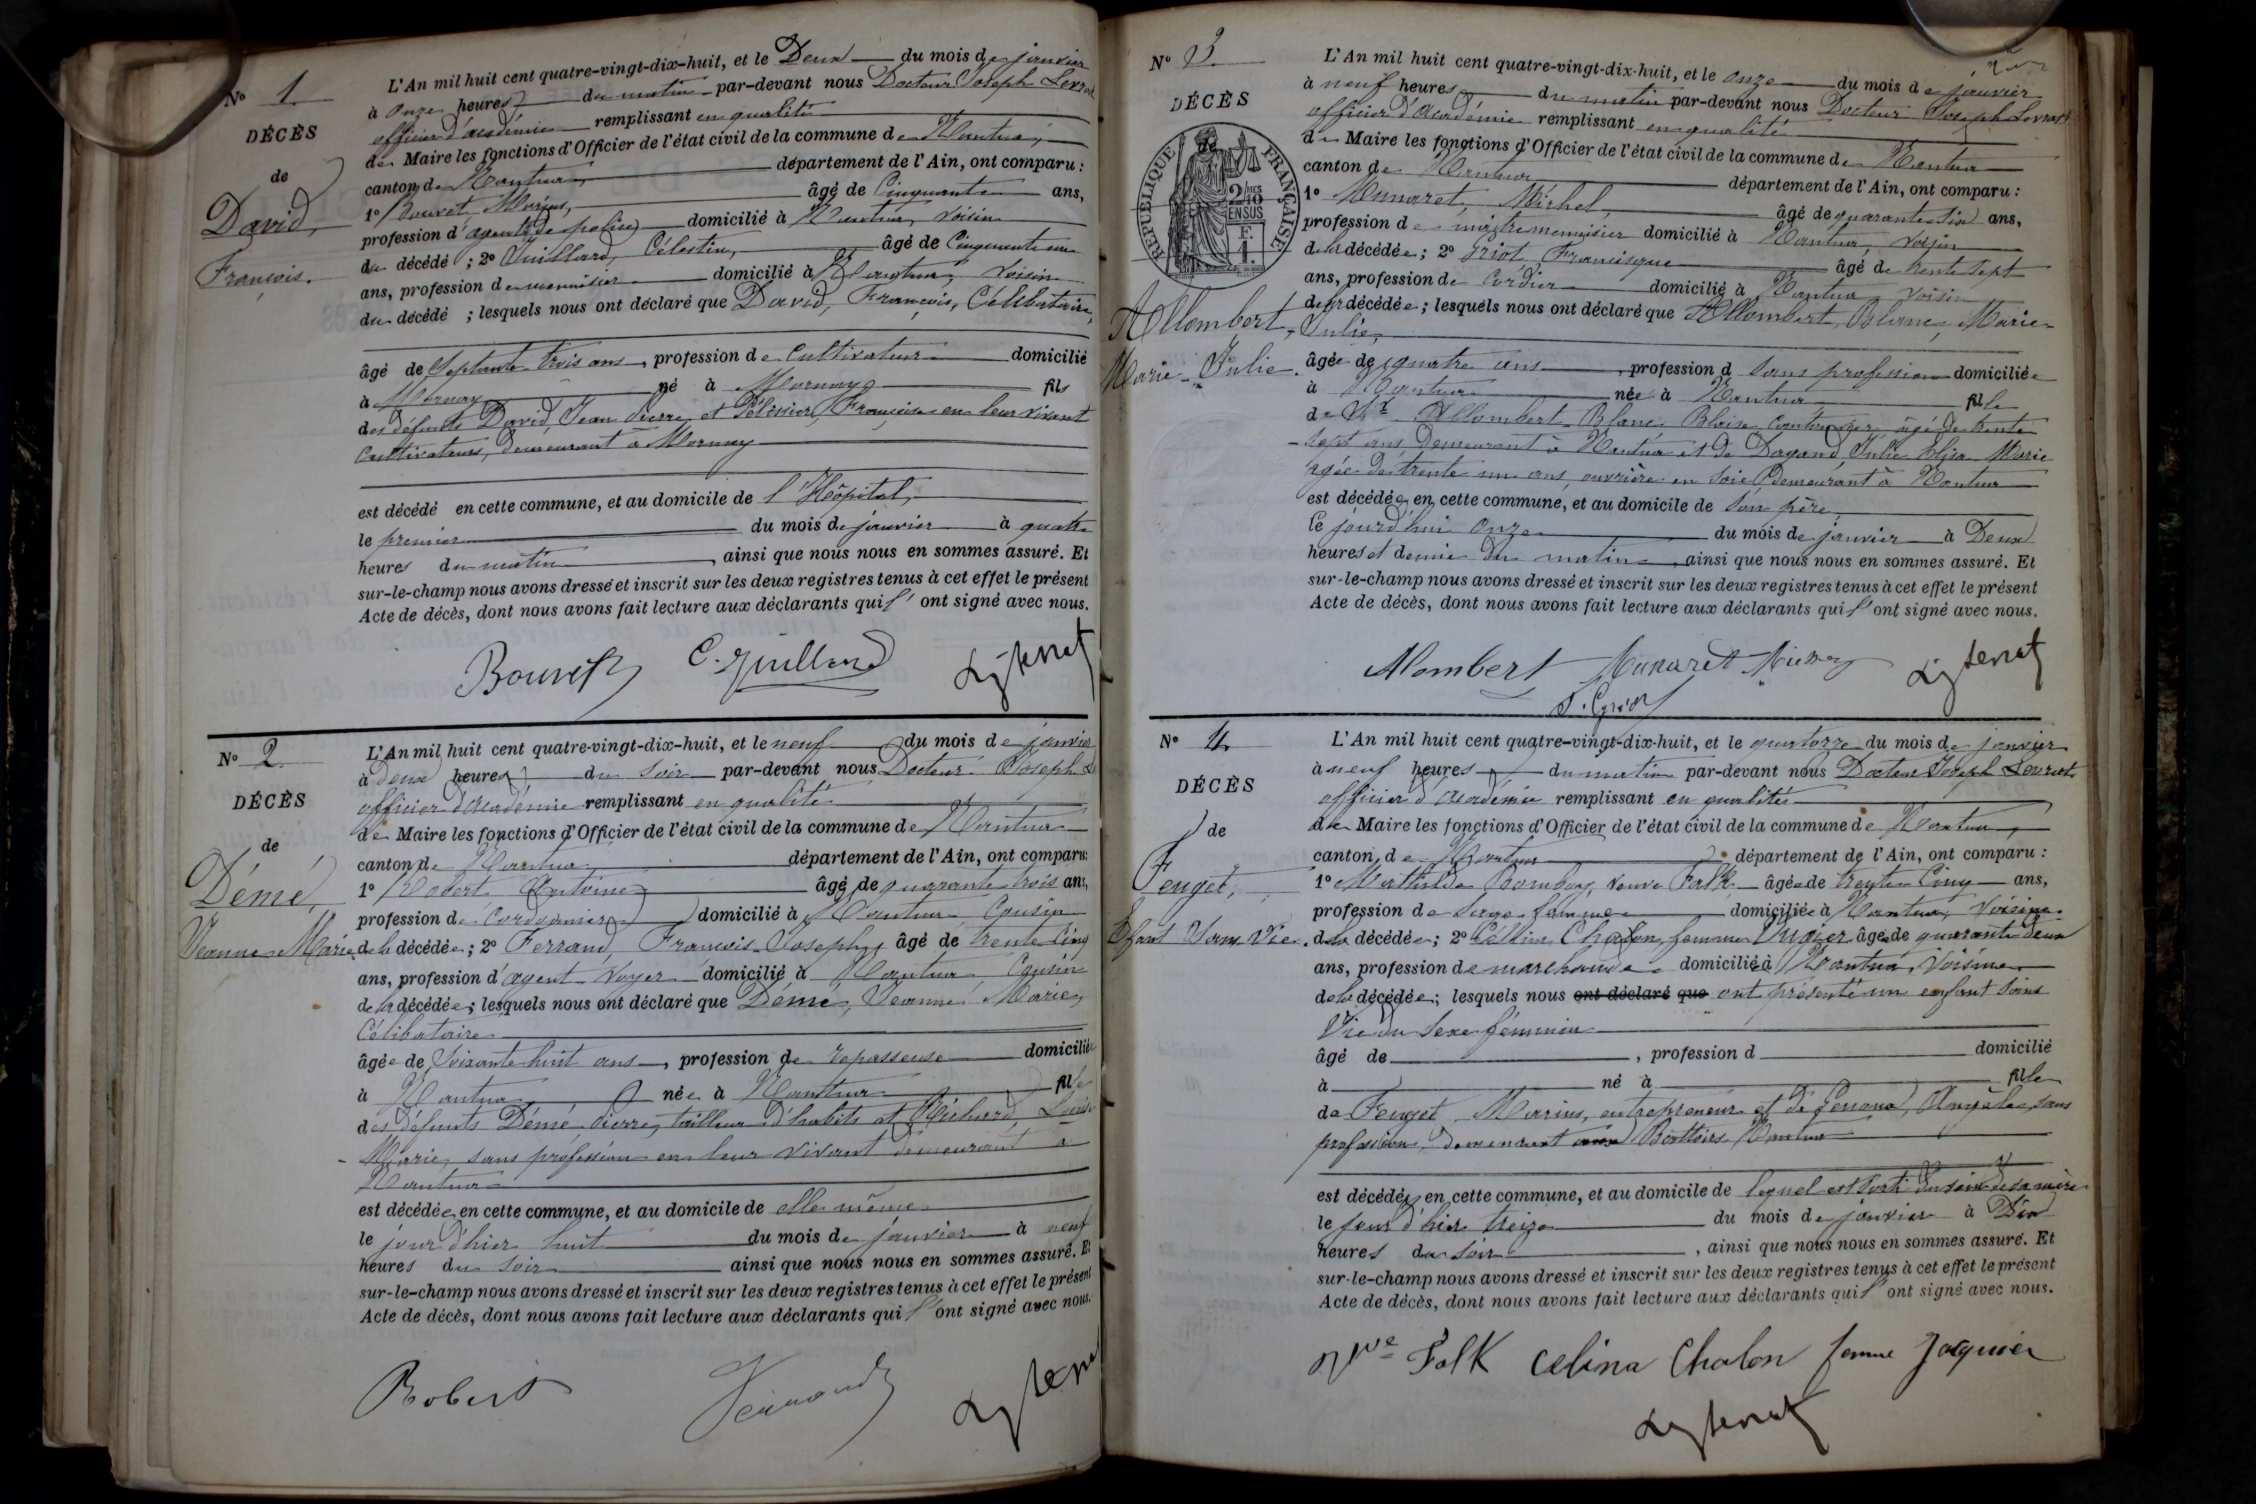 N° 1
DÉCÈS
de
David,
François.
L'An mil huit cent quatre-vingt-dix-huit, et le Deux du mois de janvier
à onze heures du matin par-devant nous Docteur Joseph
officier d'académie remplissant en qualité
de Maire les fonctions d'Officier de l'état civil de la commune de Nantua,
canton de Nantua, département de l'Ain, ont comparu :
1° Bouvet, Marius, âgé de Cinquante ans,
profession d'agent de police domicilié à Nantua, voisin
du décédé ; 2° Juilland, Célestin, âgé de Cinquante un
ans, profession de menuisier domicilié à Nantua, voisin
du décédé ; lesquels nous ont déclaré que David, François, Célibataire,
âgé de Septante trois ans, profession de Cultivateur domicilié
à Mornay né à Mornay fils
des défunts David, Jean Pierre et Pélissier, Françoise en leur vivant
cultivateurs, demeurant à Mornay
est décédé en cette commune, et au domicile de l'Hôpital,
le premier du mois de janvier à quatre
heures du matin, ainsi que nous nous en sommes assuré. Et
sur-le-champ nous avons dressé et inscrit sur les deux registres tenus à cet effet le présent
Acte de décès, dont nous avons fait lecture aux déclarants qui l'ont signé avec nous.
Bouvet C. Juilland
N° 2
DÉCÈS
de
Démé,
Jeanne Marie
L'An mil huit cent quatre-vingt-dix-huit, et le neuf du mois de janvier
à deux heures du soir par-devant nous Docteur Joseph
officier d'académie remplissant en qualité
de Maire les fonctions d'Officier de l'état civil de la commune de Nantua
canton de Nantua département de l'Ain, ont comparu:
1° Robert Antoine âgé de quarante trois ans,
profession de Cordonnier domicilié à Nantua Cousin
de la décédée ; 2° Ferrand, François Joseph, âgé de trente cinq
ans, profession d'agent voyer domicilié à Nantua Cousin
de la décédée ; lesquels nous ont déclaré que Démé, Jeanne Marie,
Célibataire
âgée de Soixante huit ans, profession de repasseuse domiciliée
à Nantua née à Nantua fille
des défunts Démé Pierre, tailleur d'habits et Richard, Louise
Marie, sans profession en leur vivant demeurant à
Nantua
est décédée en cette commune, et au domicile de elle même
le jour d'hier huit du mois de janvier à neuf
heures du soir ainsi que nous nous en sommes assuré. Et
sur-le-champ nous avons dressé et inscrit sur les deux registres tenus à cet effet le présent
Acte de décès, dont nous avons fait lecture aux déclarants qui l'ont signé avec nous.
Robert Ferrand
N° 3
DÉCÈS
RÉPUBLIQUE FRANÇAISE
2/10 EN SUS
F.
1.
Allombert,
Marie-Julie.
L'An mil huit cent quatre-vingt-dix-huit, et le onze du mois de janvier
à neuf heures du matin par-devant nous Docteur Joseph
officier d'académie remplissant en qualité
de Maire les fonctions d'Officier de l'état civil de la commune de Nantua
canton de Nantua département de l'Ain, ont comparu :
1° Munaret, Michel, âgé de quarante six ans,
profession de maître menuisier domicilié à Nantua, voisin
de la décédée ; 2° Griot, Francisque âgé de trente sept
ans, profession de Cordier domicilié à Nantua voisin
de la décédée ; lesquels nous ont déclaré que Allombert Blanc, Marie
Julie,
âgée de quatre ans, profession d sans profession domiciliée
à Nantua née à Nantua fille
de Allombert Blanc Blaise âgé de trente
sept ans demeurant à Nantua et de Dagand, Julie Elisa Marie
agée de trente un ans, ouvrière en soie demeurant à Nantua
est décédée en cette commune, et au domicile de son père,
le jourd'hui onze du mois de janvier à Deux
heures et demie du matin, ainsi que nous nous en sommes assuré. Et
sur-le-champ nous avons dressé et inscrit sur les deux registres tenus à cet effet le présent
Acte de décès, dont nous avons fait lecture aux déclarants qui l'ont signé avec nous.
Allombert Munaret
N° 4
DÉCÈS
de
Feuget,
Efant Sans Vie.
L'An mil huit cent quatre-vingt-dix-huit, et le quatorze du mois de janvier
à neuf heures du matin par-devant nous Docteur Joseph
officier d'académie remplissant en qualité
de Maire les fonctions d'Officier de l'état civil de la commune de Nantua,
canton de Nantua département de l'Ain, ont comparu :
1° Mathilde Bombay, veuve Falk âgée de trente Cinq ans,
profession de Sage femme domiciliée à Nantua, Voisine
de la décédée ; 2° Célina Chalon, femme âgée de quarante deux
ans, profession de marchande domiciliée à Nantua, Voisine
de la décédée ; lesquels nous ont déclaré que ont présenté un enfant Sans
Vie du Sexe féminin
âgé de , profession d domicilié
à né à fille
de Feuget Marius, entrepreneur et de Angèle, sans
profession, demeurant aux Battoirs Nantua
est décédée en cette commune, et au domicile de lequel est sorti du sein de sa mère
le jour d'hier treize du mois de janvier à Dix
heures du soir, ainsi que nous nous en sommes assuré. Et
sur-le-champ nous avons dressé et inscrit sur les deux registres tenus à cet effet le présent
Acte de décès, dont nous avons fait lecture aux déclarants qui l'ont signé avec nous.
Vve Falk Celina Chalon femme Jacquier